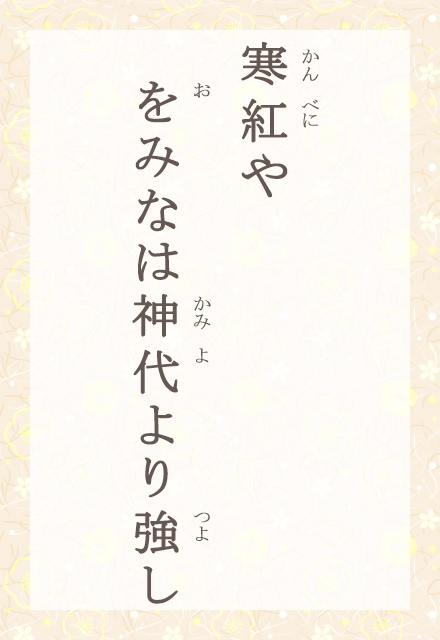 寒紅や
かんべに
をみなは神代より強し
お
かみよ
つよ